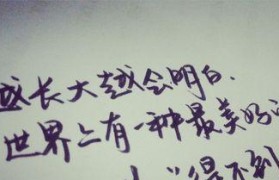 成长大越会明白、
世界上有一种最美好
得不到